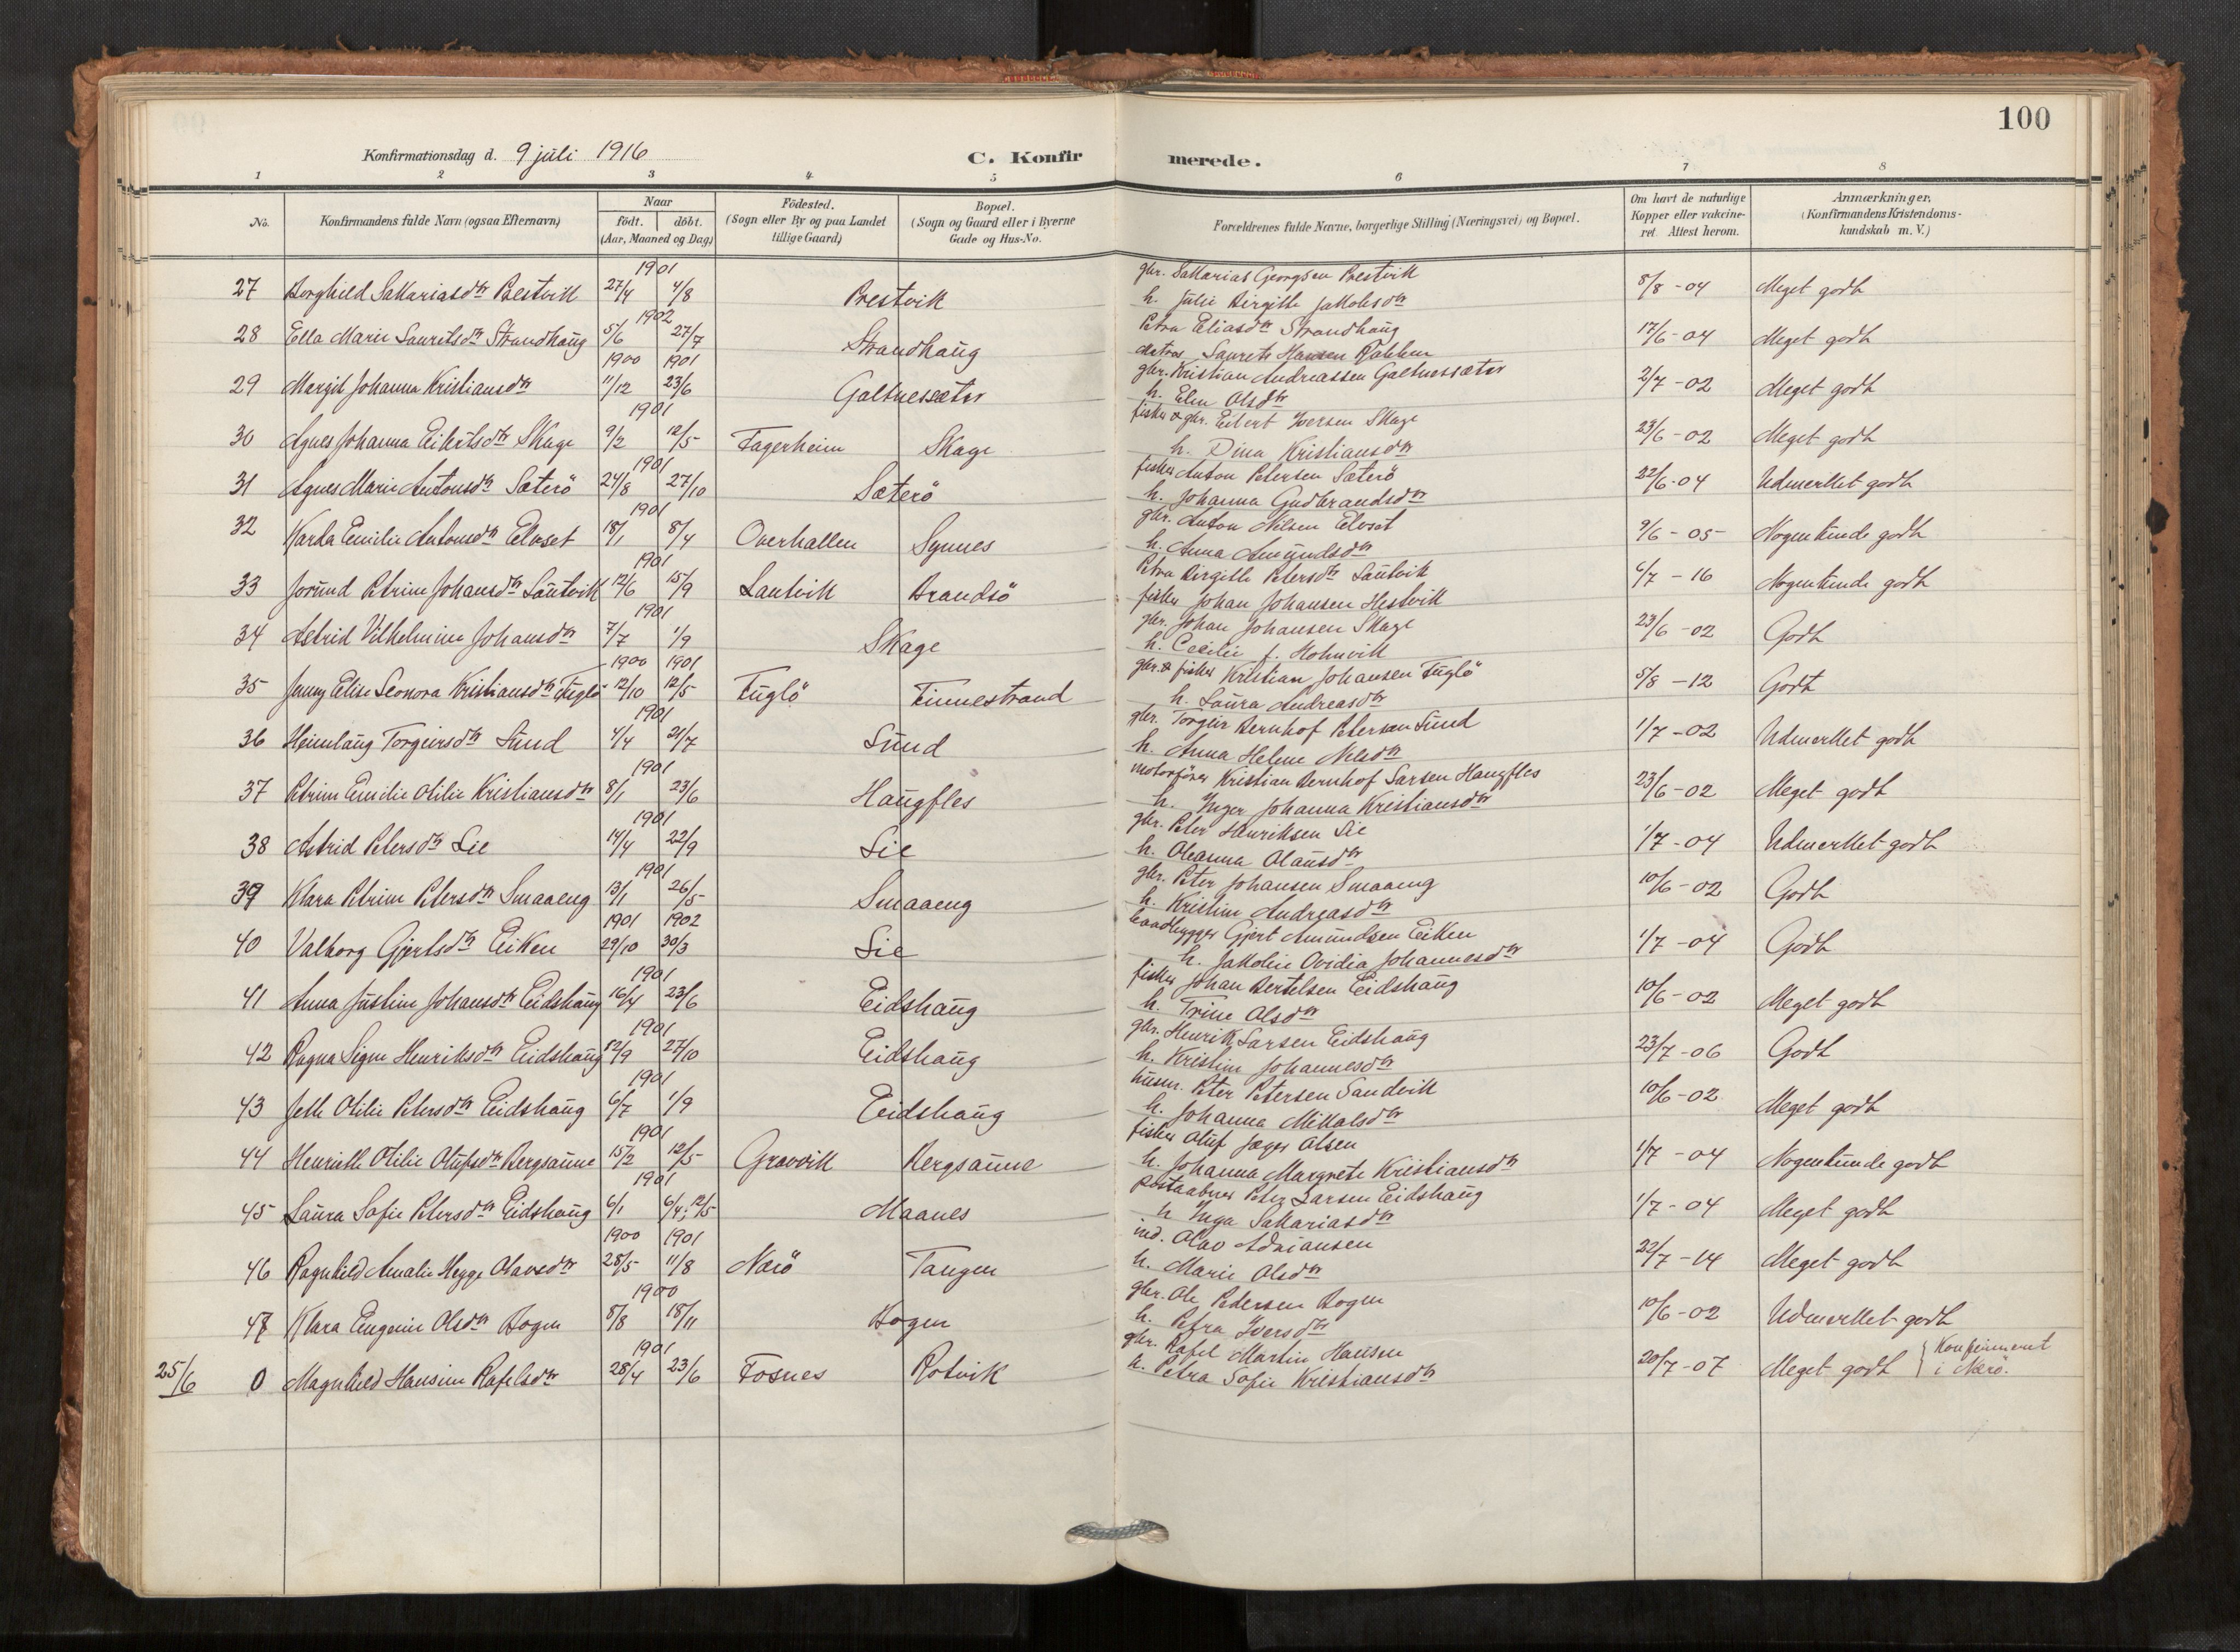 100
Konfirmationsdag d. 9 juli 1916
C. Konfirmerede.
1 2 3 4 5 6 7 8
No.
Konfirmandens fulde Navn (ogsaa Efternavn)
Naar
födt. döbt.
(Aar, Maaned og Dag)
Födested.
(Sogn eller By og paa Landet
tillige Gaard)
Bopæl.
(Sogn og Gaard eller i Byerne
Gade og Hus-No.
Forældrenes fulde Navne, borgerlige Stilling (Næringsvei) og Bopæl.
Om havt de naturlige
Kopper eller vakcine-
ret. Attest herom.
Anmærkninger,
(Konfirmandens Kristendoms-
kundskab m. V.)
27 Borghild Sakariasdtr Prestvik 1901 27/4 4/8 Prestvik gbr. Sakarias Georgsen Prestvik 8/8-04 Meget godt
h. Julie Birgitte Jakobsdtr
28 Ella Marie Lauritsdtr Strandhaug 1902 5/6 27/7 Strandhaug Petra Eliasdtr Strandhaug 17/6-04 Meget godt
Matros Laurits Hansen
29 Margit Johanna Kristiansdtr 1900 11/12 1901 23/6 Galtnesæter gbr. Kristian Andreassen Galtnessæter 2/7-02 Meget godt
h. Elen Olsdtr
30 Agnes Johanna Eilertsdtr Skage 1901 9/2 12/5 Fagerheim Skage fisker & gbr. Eilert Iversen Skage 23/6-02 Meget godt
h. Dina Kristiansdtr
31 Agnes Marie Antonsdtr Sæterö 1901 24/8 27/10 Sæterö fisker Anton Petersen Sæterö 22/6-04 Udmerket godt
h. Johanna Gudbrandsdtr
32 Karla Emilie Antonsdtr Elvset 1901 18/1 8/4 Overhallen Synnes gbr. Anton Nilsen Elvset 9/6-05 Nogenlunde godt
h. Anna Amundsdtr
33 Jorund Petrine Johansdtr Lautvik 1901 12/6 15/9 Lautvik Brandsö Petra Birgitte Petersdtr Lautvik 6/7-16 Nogenlunde godt
fisker Johan Johansen Hestvik
34 Astrid Vilhelmine Johansdtr 1901 7/7 1/9 Skage gbr. Johan Johansen Skage 23/6-02 Godt
h. Cecilie f. Holmvik
35 Jenny Elise Leonora Kristiansdtr Fuglö 1900 12/10 1901 12/5 Fuglö Finnestrand gbr. & fisker Kristian Johansen Fuglö 5/8-12 Godt
h. Laura Andreasdtr
36 Heimlaug Torgeirsdtr Sund 1901 4/4 21/7 Sund gbr. Torgeir Bernhof Petersen Sund 1/7-02 Udmerket godt
h. Anna Helene Nilsdtr
37 Petrine Emilie Otilie Kristiansdtr 1901 8/1 23/6 Haugfles motorförer Kristian Bernhof Larsen Haugfles 23/6-02 Meget godt
h. Inger Johanna Kristiansdtr
38 Astrid Petersdtr Lie 1901 14/4 22/9 Lie gbr. Peter Henriksen Lie 1/7-04 Udmerket godt
h. Oleanna Olausdtr
39 Klara Petrine Petersdtr Smaaeng 1901 13/1 26/5 Smaaeng gbr. Peter Johansen Smaaeng 10/6-02 Godt
h. Kristine Andreasdtr
40 Valborg Gjertsdtr Eiken 1901 29/10 1902 30/3 Lie baadbygger Gjert Amundsen Eiken 1/7-04 Godt
h. Jakobie Ovidia Johannesdtr
41 Anna Justine Johansdtr Eidshaug 1901 16/4 23/6 Eidshaug fisker Johan Bertelsen Eidshaug 10/6-02 Meget godt
h. Trine Olsdtr
42 Ragna Signe Henriksdtr Eidshaug 1901 12/9 27/10 Eidshaug gbr. Henrik Larsen Eidshaug 23/7-06 Godt
h. Kristine Johannesdtr
43 Jette Otilie Petersdtr Eidshaug 1901 6/7 1/9 Eidshaug husm. Peter Petersen Sandvik 10/6-02 Meget godt
h. Johanna Mikalsdtr
44 Henriette Otilie Olufsdtr Bergsaune 1901 15/2 12/5 Gravvik Bergsaune fisker Oluf Jæger Olsen 1/7-04 Nogenlunde godt
h. Johanna Margrete Kristiansdtr
45 Laura Sofie Petersdtr Eidshaug 1901 6/1 6/4; 12/5 Maanes postaabner Peter Larsen Eidshaug 1/7-04 Meget godt
h. Inga Sakariasdtr
46 Ragnhild Amalie Hegge Olavsdtr 1900 28/5 1901 11/8 Nærö Tangen ind. Olav Adriansen 22/7-14 Meget godt
h. Marie Olsdtr
47 Klara Eugenie Olsdtr Bogen 1900 8/8 18/11 Bogen gbr. Ole Pedersen Bogen 10/6-02 Udmerket godt
h. Petra Iversdtr
25/6 0 Magnhild Hansine Rafelsdtr 1901 28/4 23/6 Fosnes Rotvik gbr. Rafel Martin Hansen 20/7-07 Meget godt { Konfirmeret
h. Petra Sofie Kristiansdtr i Nærö.